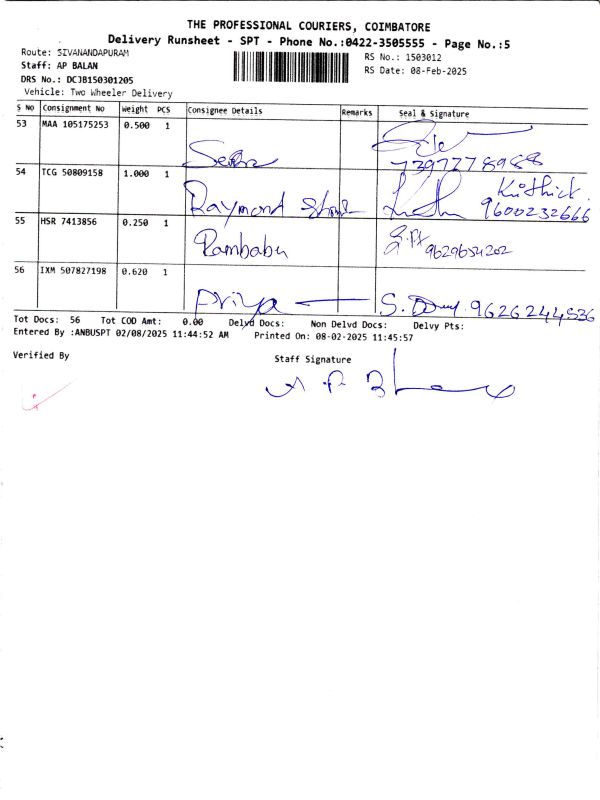 THE PROFESSIONAL COURIERS, COIMBATORE
Delivery Runsheet - SPT - Phone No.:0422-3505555 - Page No.:5
Route: SIVANANDAPURAM
RS No.: 1503012
Staff: AP BALAN
RS Date: 08-Feb-2025
DRS No.: DCJB150301205
Vehicle: Two Wheeler Delivery
S No Consignment No Weight PCS Consignee Details Remarks Seal & Signature
53 MAA 105175253 0.500 1
7397778988
54 TCG 50809158 1.000 1 Raymond
9600232666
55 HSR 7413856 0.250 1 Rambabu 9629654202
56 IXM 507827198 0.620 1 Priya S. 9626244536
Tot Docs: 56 Tot COD Amt: 0.00 Delvd Docs: Non Delvd Docs: Delvy Pts:
Entered By :ANBUSPT 02/08/2025 11:44:52 AM Printed On: 08-02-2025 11:45:57
Verified By Staff Signature